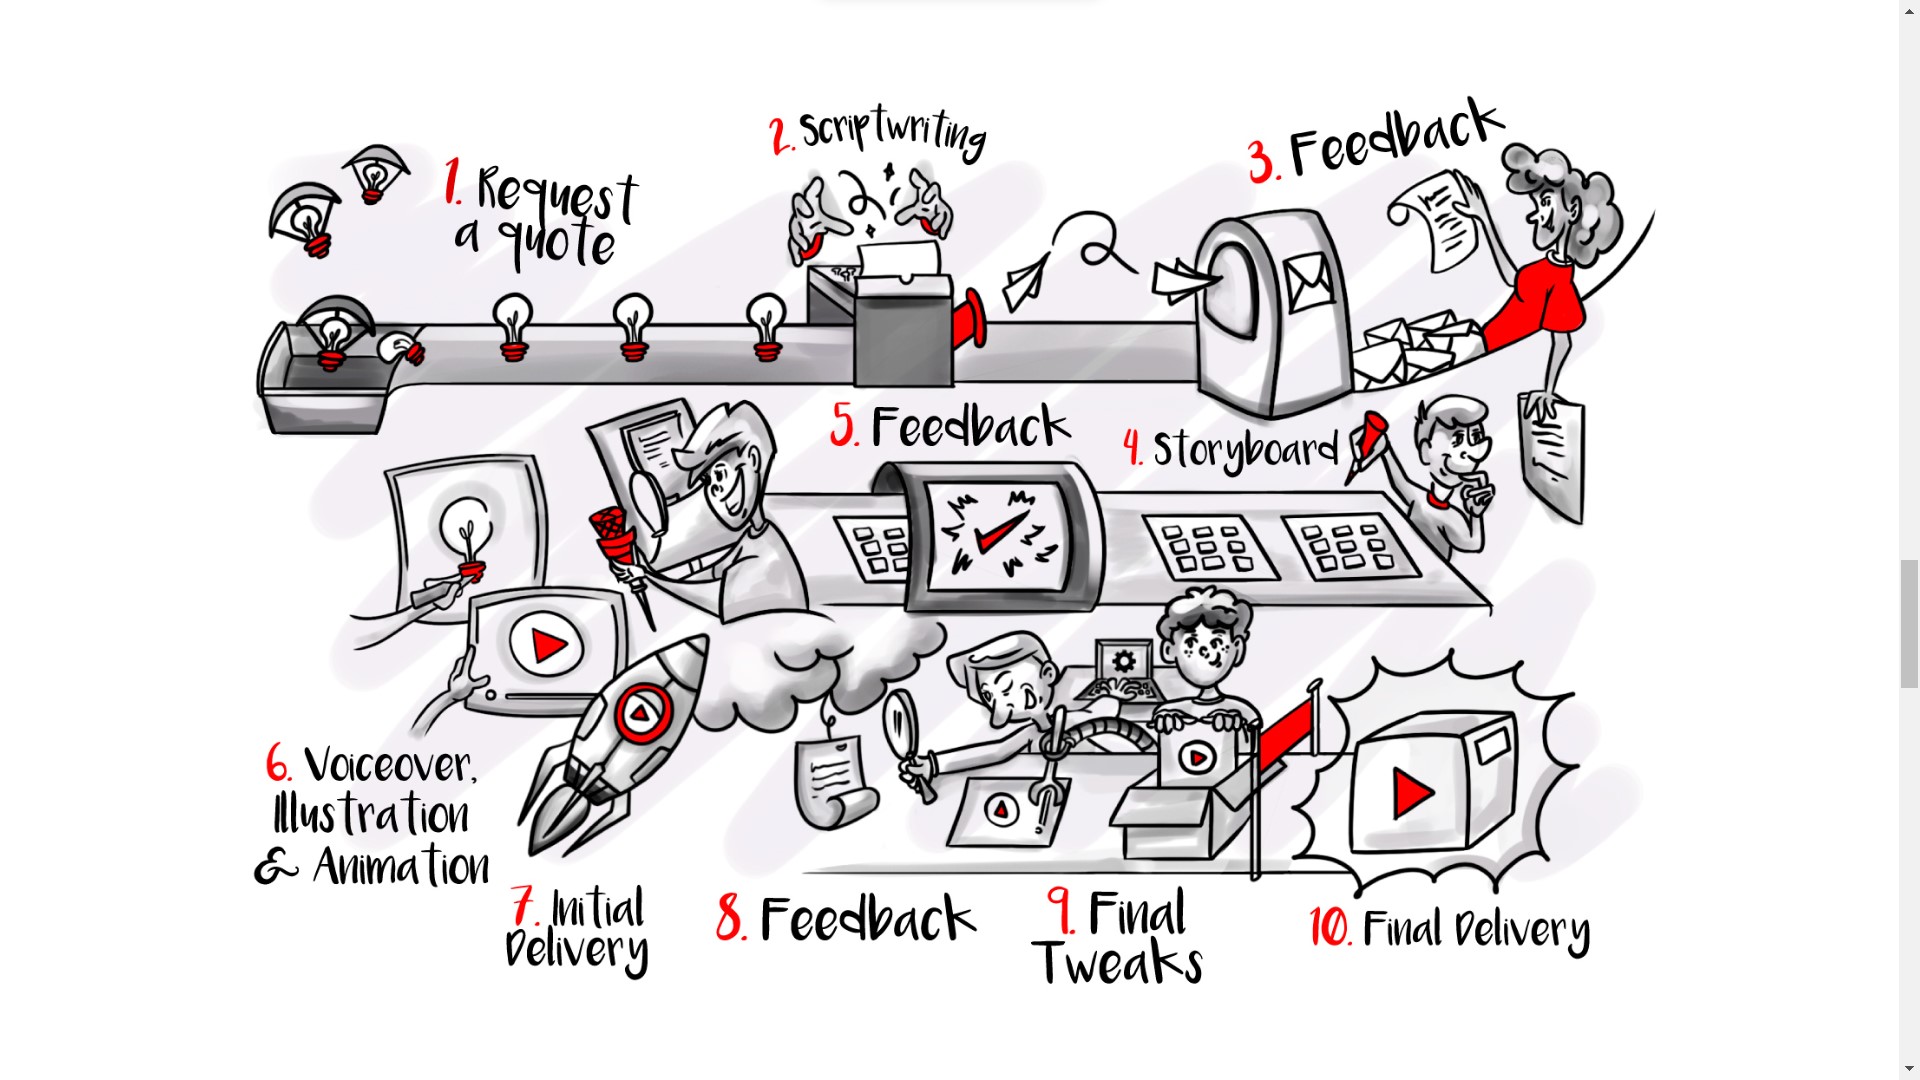 1. Request
a quote
2. Scriptwriting
3. Feedback
4. Storyboard
5. Feedback
6. Voiceover,
Illustration
& Animation
7. Initial
Delivery
8. Feedback
9. Final
Tweaks
10. Final Delivery